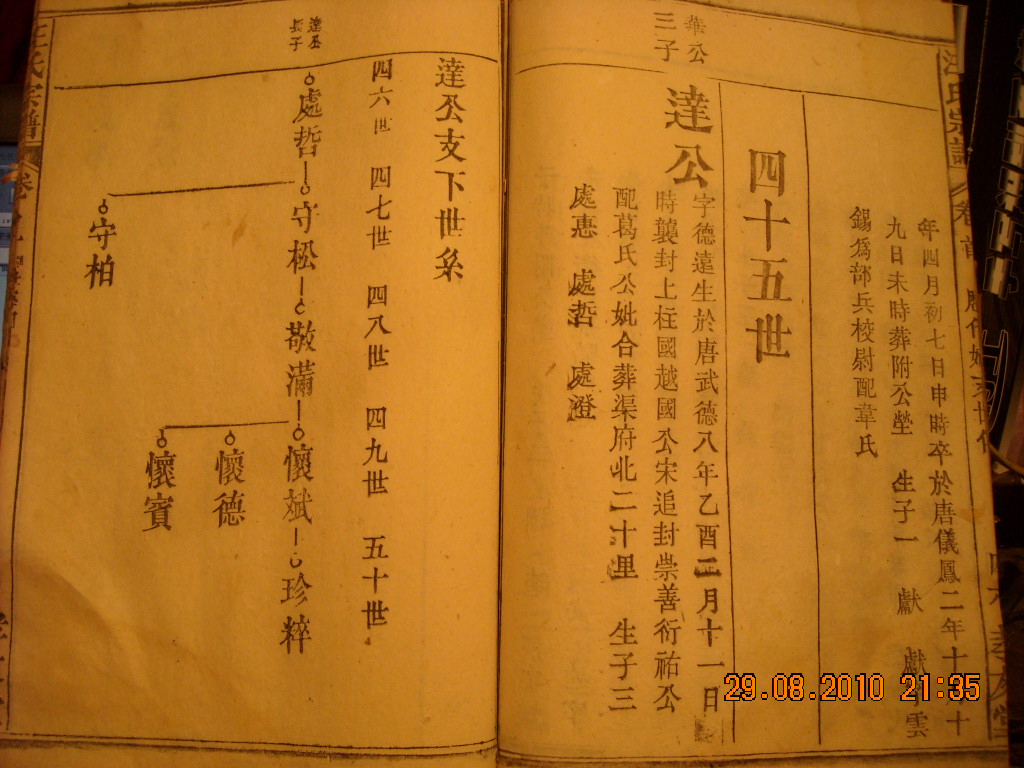 汪氏宗譜
卷首
年四月初七日申時卒於唐儀鳳二年十一月十
九日未時葬附公塋 生子一 獻 獻字雲
錫為部兵校尉配韋氏
四十五世
華公
三子
達公
字德遠生於唐武德八年乙酉二月十一日
時襲封上柱國越國公宋追封崇善衍祐公
配葛氏公妣合葬渠府北二十里 生子三
處惠 處哲 處澄
達公支下世系
四六世 四七世 四八世 四九世 五十世
達公
長子
處哲 守松 敬滿 懷斌 珍粹
懷德
懷賓
守柏
汪氏宗譜
29.08.2010 21:35